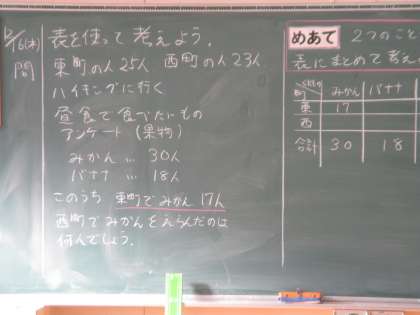 12/6(木)
問
表を使って考えよう。
東町の人25人 西町の人23人
ハイキングに行く
昼食で食べたいもの
アンケート(果物)
みかん … 30人
バナナ … 18人
このうち東町でみかん17人
西町でみかんをえらんだのは
何人でしょう。
めあて 2つのこと
表にまとめて考え
町 みかん バナナ
東 17
西
合計 30 18